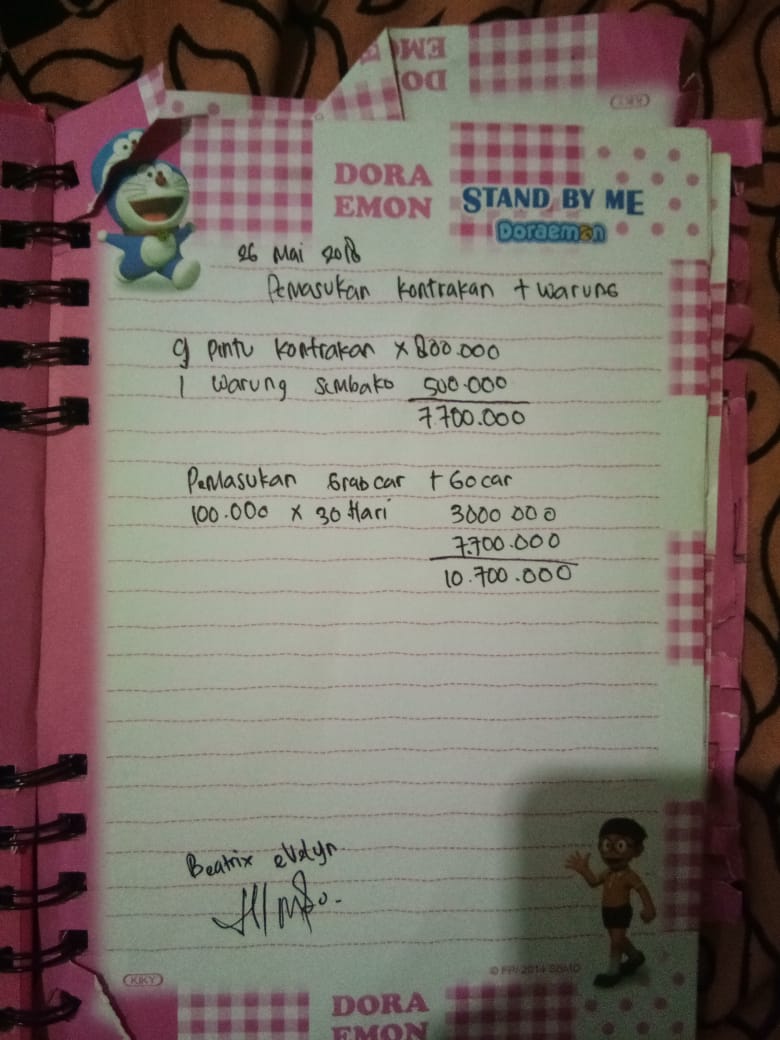 EMO
DO
KKY
DORA
EMON
STAND BY ME
Doraemon
26 Mai 2018
Pemasukan kontrakan + warung
9 Pintu kontrakan x 800.000
1 Warung sembako 500.000
7.700.000
Pemasukan Grab car + Go car
100.000 x 30 Hari 3000 000
7.700.000
10.700.000
Beatrix eVelyn
KKY
© FP/ 2014 SBMD
DORA
EMON